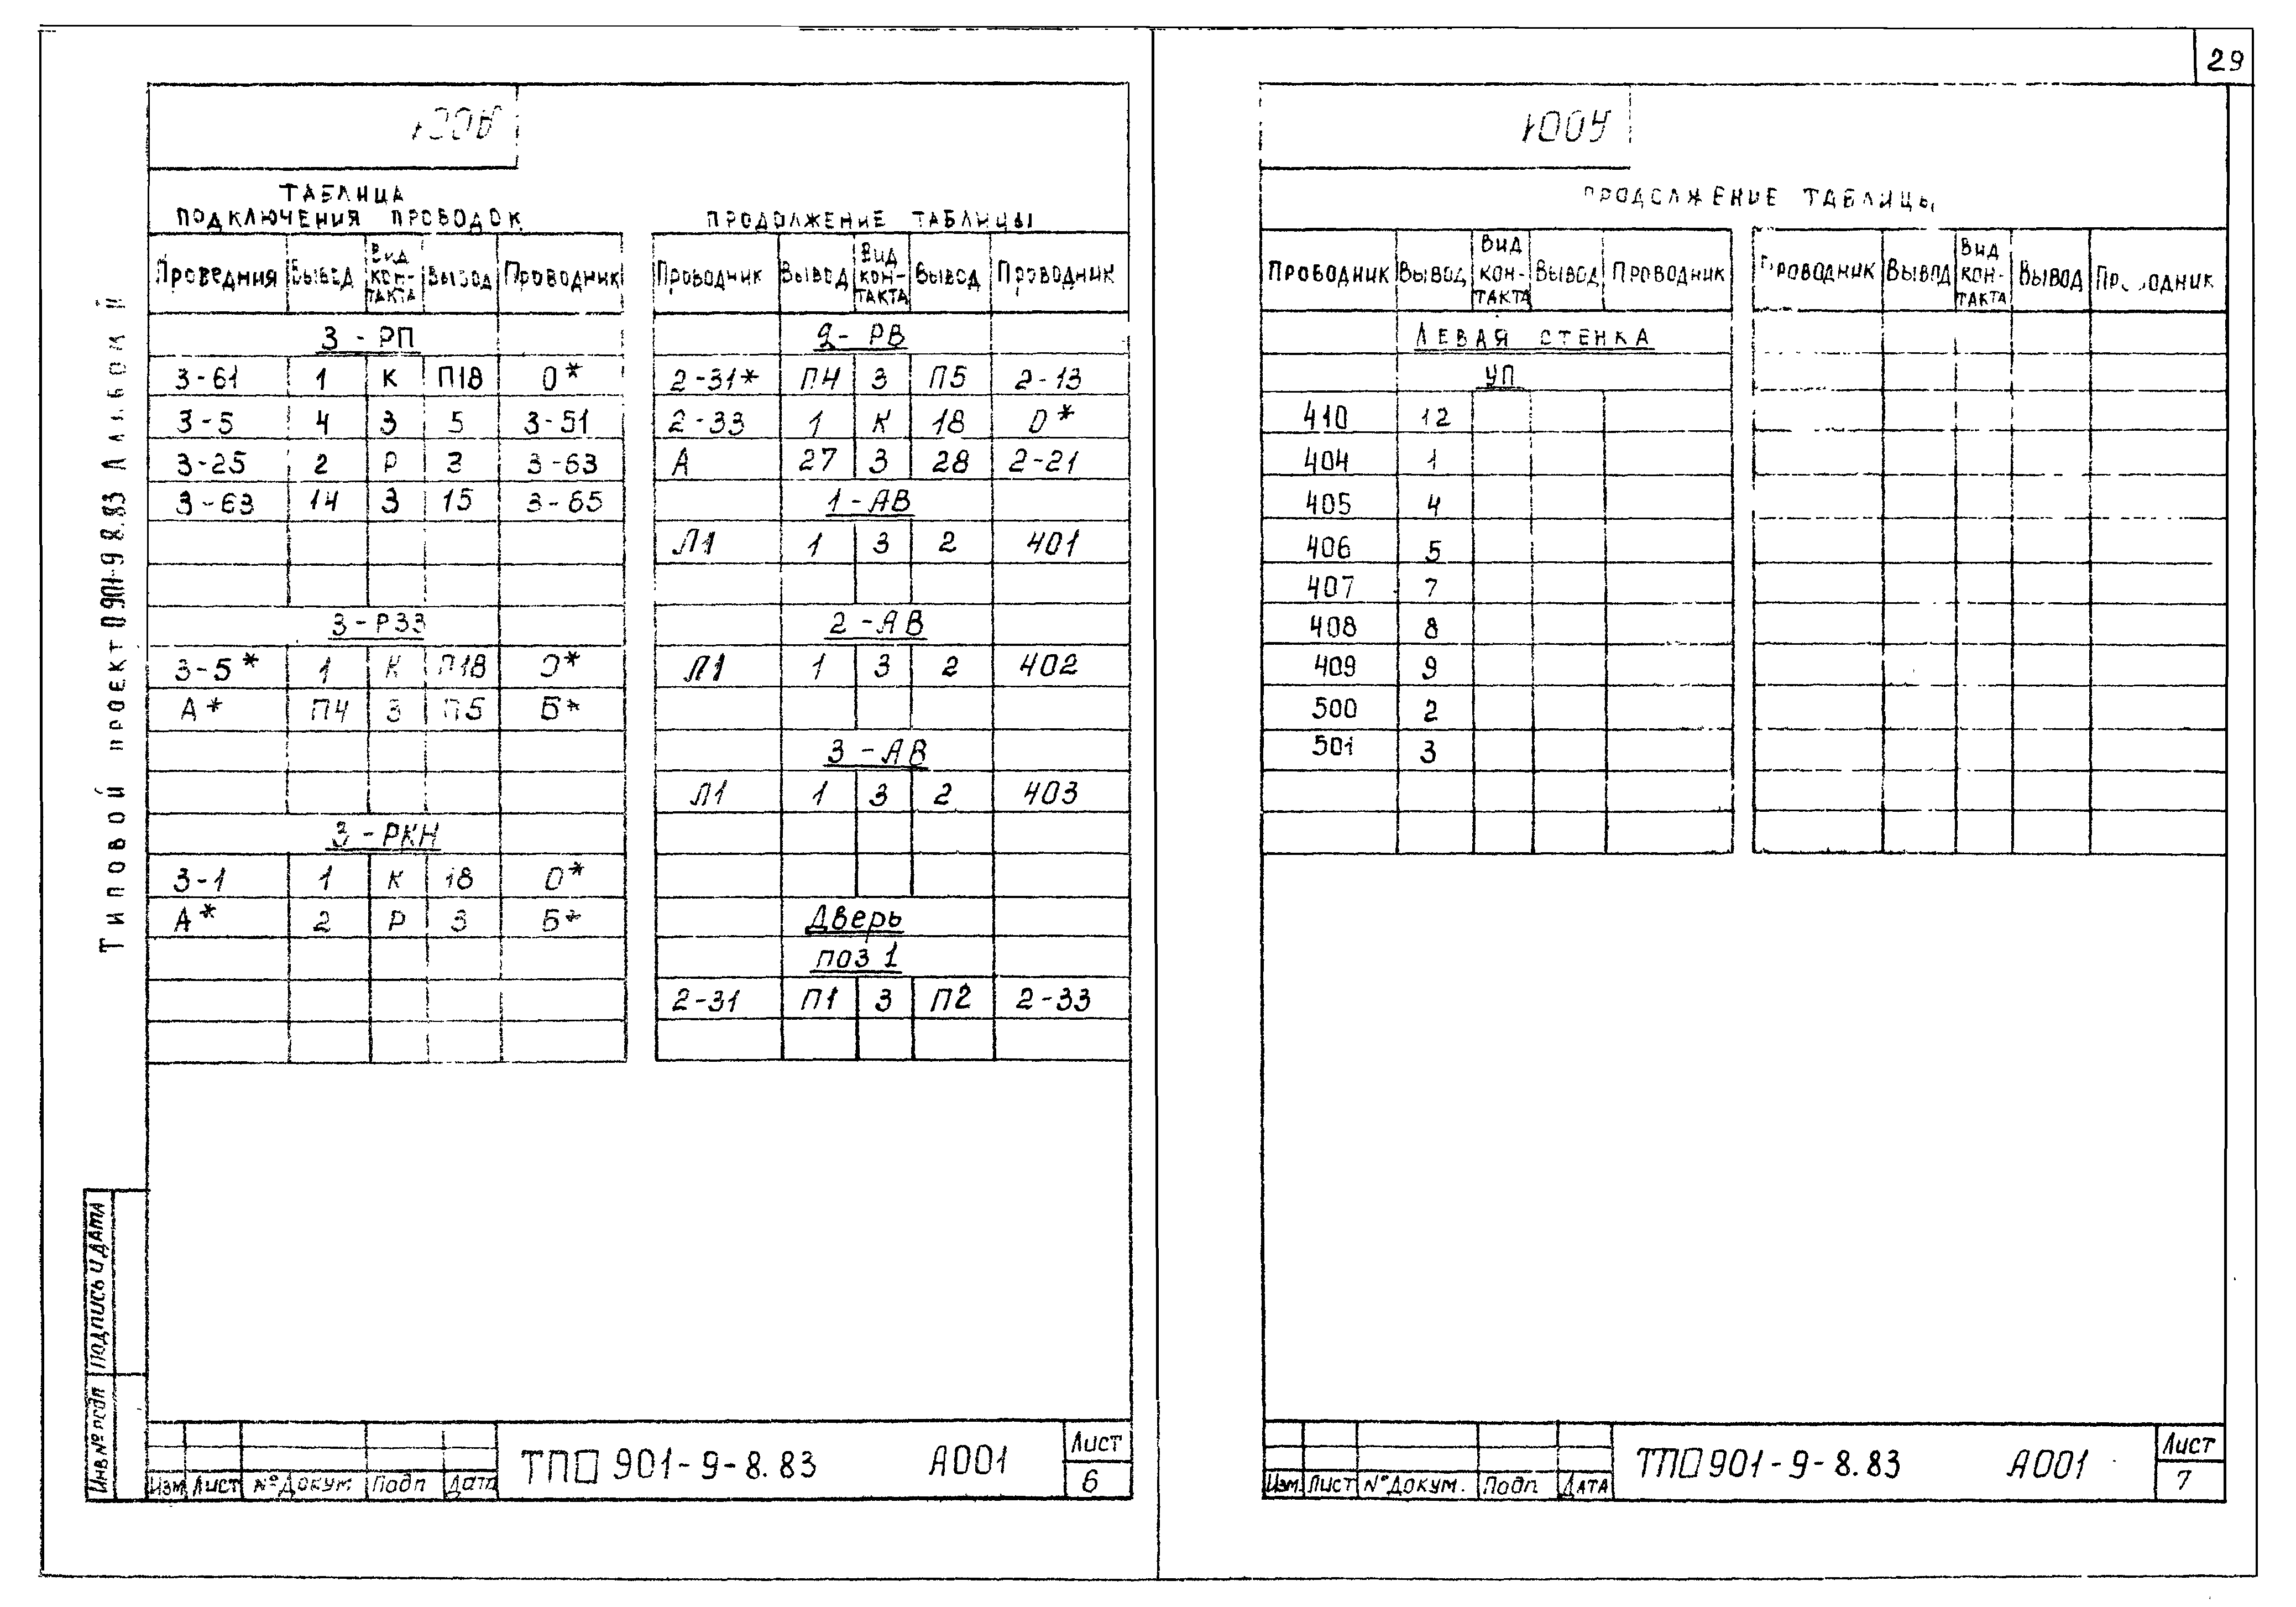 29
А001
ТАБЛИЦА
ПОДКЛЮЧЕНИЯ ПРОВОДОК
Проведния Вывод Вид кон-такта Вывод Проводник
3-РП
3-61 1 К П18 0*
3-5 4 З 5 3-51
3-25 2 Р 3 3-63
3-63 14 З 15 3-65
3-РЗЗ
3-5* 1 К П18 0*
А* П4 З П5 Б*
3-РКН
3-1 1 К 18 0*
А* 2 Р 3 Б*
ПРОДОЛЖЕНИЕ ТАБЛИЦЫ
Проводник Вывод Вид кон-такта Вывод Проводник
2-РВ
2-31* П4 З П5 2-13
2-33 1 К 18 0*
А 27 З 28 2-21
1-АВ
Л1 1 З 2 401
2-АВ
Л1 1 З 2 402
3-АВ
Л1 1 З 2 403
Дверь
поз 1
2-31 П1 З П2 2-33
Типовой проект 0 901-9 8.83 Альбом II
Инв № подп
Подпись и дата
Изм Лист № докум Подп Дата
ТПО 901-9-8.83 А001
Лист
6
А001
ПРОДОЛЖЕНИЕ ТАБЛИЦЫ
Проводник Вывод Вид кон-такта Вывод Проводник
Проводник Вывод Вид кон-такта Вывод Проводник
ЛЕВАЯ СТЕНКА
УП
410 12
404 1
405 4
406 5
407 7
408 8
409 9
500 2
501 3
Изм. Лист № докум. Подп Дата
ТПО 901-9-8.83 А001
Лист
7